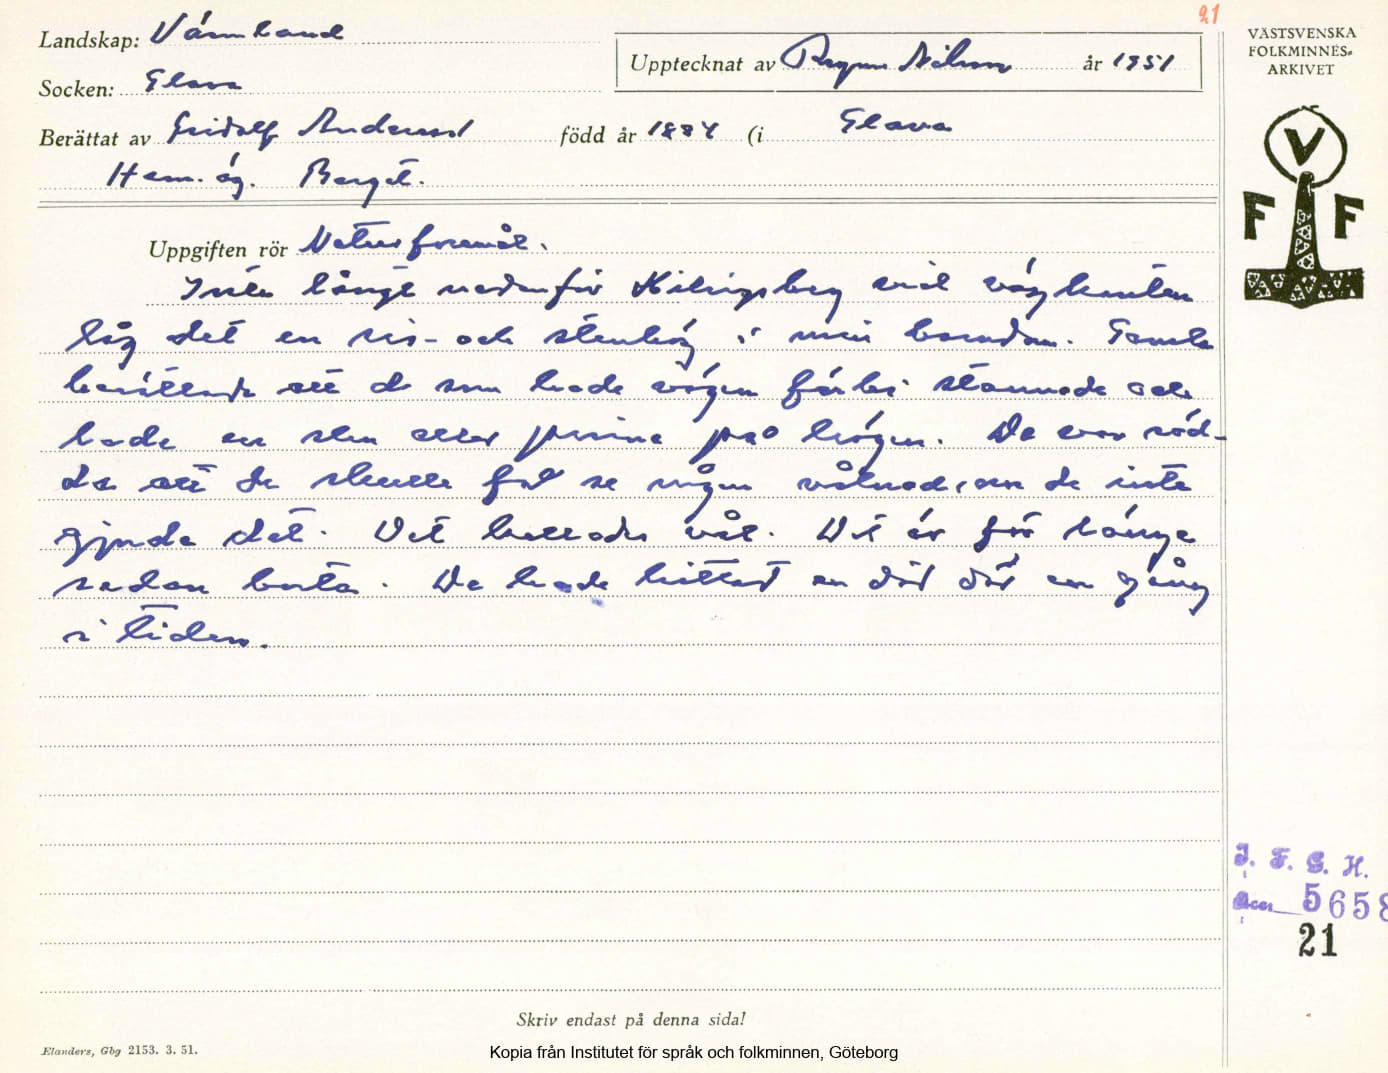 21
Landskap: Värmland
Upptecknat av Ragnar Nilsson år 1951
VÄSTSVENSKA
FOLKMINNES-
ARKIVET
Socken: Glava
Berättat av Fridolf Andersson född år 1884 (i Glava
Hem. äg. Berget.
V
F F
Uppgiften rör Naturföremål.
Inte långt nedanför Hilringsberg vid vägkanten
låg det en ris- och stenhög i min barndom. Gamla
berättade att de som hade vägen förbi stannade och
lade en sten eller pinne på högen. De var räd-
da att de skulle få se någon vålnad, om de inte
gjorde det. Det kallades vål. Det är för länge
sedan borta. De hade hittat en död där en gång
i tiden.
I. F. G. H.
Acc. 5658
21
Skriv endast på denna sida!
Elanders, Gbg 2153. 3. 51.
Kopia från Institutet för språk och folkminnen, Göteborg